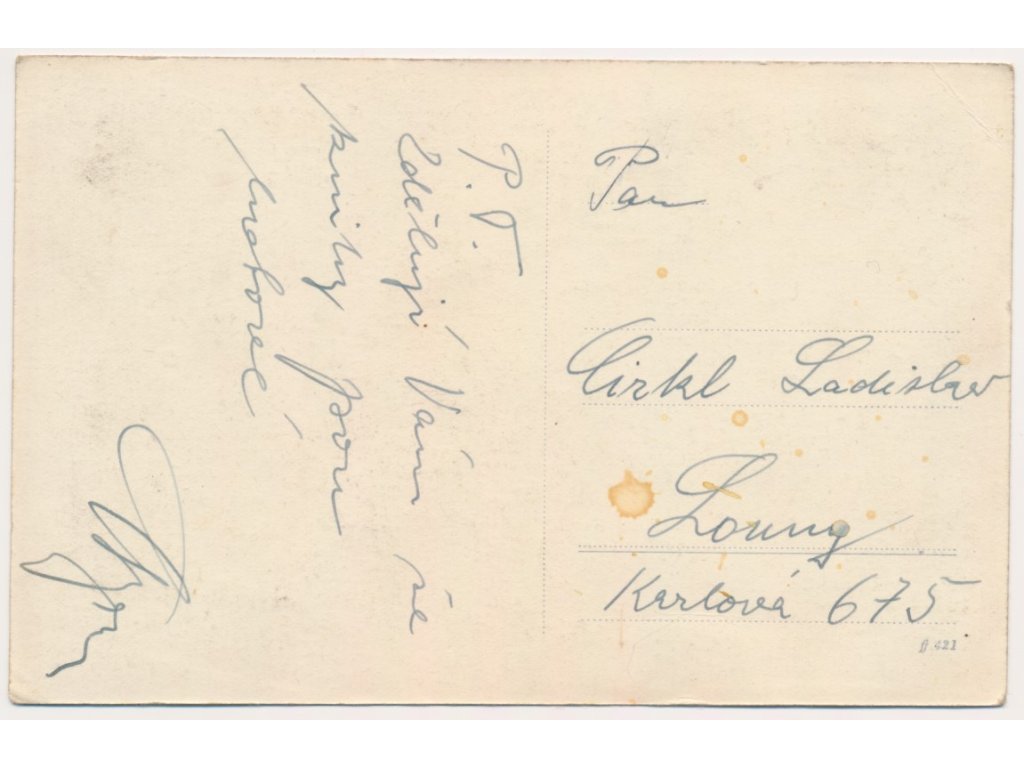 P. T.
Sděluji Vám že
knihy jsou
hotové
Pan
Cirkl Ladislav
Louny
Karlova 675
A 421